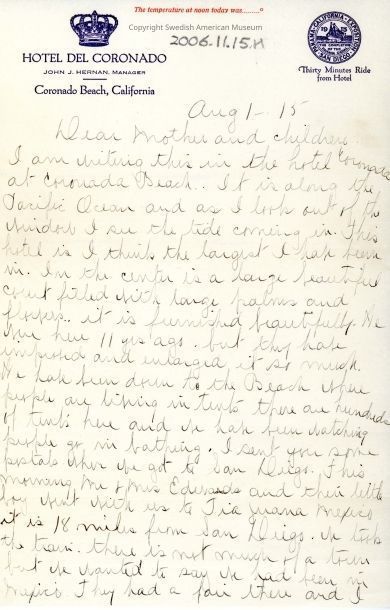 The temperature at noon today was..........°
Copyright Swedish American Museum
2006.11.15.H
HOTEL DEL CORONADO
JOHN J. HERNAN, MANAGER
Coronado Beach, California
PANAMA-CALIFORNIA EXPOSITION
SAN DIEGO
1915
Thirty Minutes Ride
from Hotel
Aug 1-. 15
Dear Mother and children.
I am writing this in the hotel Coronado
at Coronada Beach. It is along the
Pacific Ocean and as I look out of the
window I see the tide coming in. This
hotel is I think the largest I hab been
in. In the center is a large beautiful
court filled with large palms and
flowers. it is furnished beautifully. We
were here 11 yrs ago. but they hab
improved and enlarged it so much.
We hab been down to the Beach where
people are living in tents there are hundreds
of tents here and we hab been watching
people go in bathing. I sent you some
postals when we got to San Diego. This
morning Mr & Mrs Edwards and their little
boy went with us to Tia Juana Mexico
it is 18 miles from San Diego. We took
the train. there is not much of a town
but we wanted to say we had been in
Mexico. They had a fair there and I